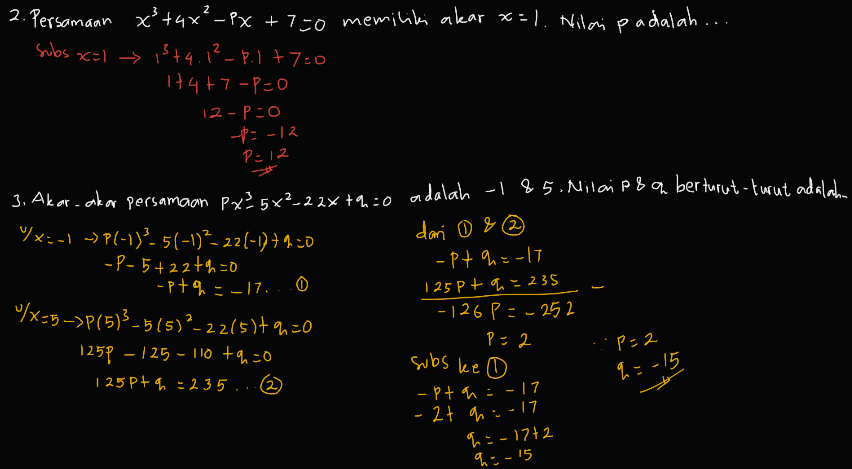 2. Persamaan x³+4x²-Px+7=0 memiliki akar x=1. Nilai p adalah...
subs x=1 → 1³+4.1²-P.1+7=0
1+4+7-P=0
12-P=0
-P=-12
P=12
3. Akar-akar persamaan Px³-5x²-22x+q=0 adalah -1 & 5. Nilai P & q berturut-turut adalah-
u/x=-1 → P(-1)³-5(-1)²-22(-1)+q=0
-P-5+22+q=0
-P+q=-17...①
u/x=5 → P(5)³-5(5)²-22(5)+q=0
125P-125-110+q=0
125P+q=235...②
dari ① & ②
-P+q=-17
125P+q=235 -
-126P=-252
P=2
subs ke ①
-P+q=-17
-2+q=-17
q=-17+2
q=-15
∵ P=2
q=-15